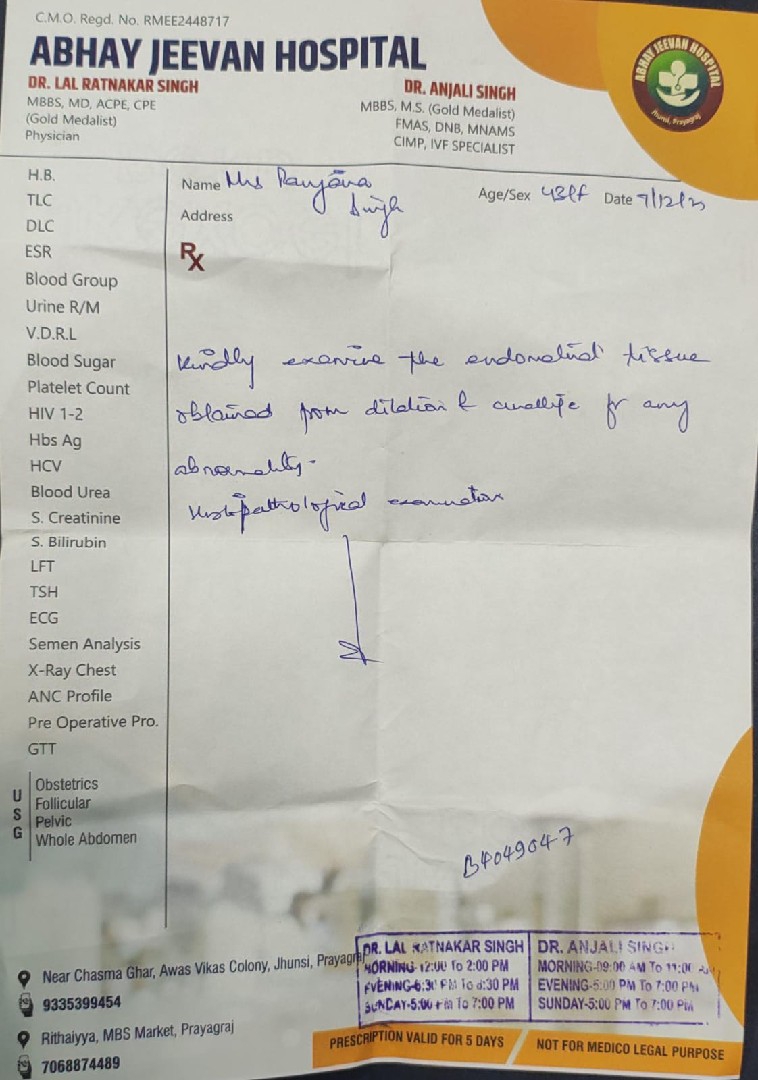 C.M.O. Regd. No. RMEE2448717
ABHAY JEEVAN HOSPITAL
DR. LAL RATNAKAR SINGH
MBBS, MD, ACPE, CPE
(Gold Medalist)
Physician
DR. ANJALI SINGH
MBBS, M.S. (Gold Medalist)
FMAS, DNB, MNAMS
CIMP, IVF SPECIALIST
ABHAY JEEVAN HOSPITAL
Jhunsi, Prayagraj
Name Mrs Ranjana
Singh
Age/Sex 43/f Date 7/12/
Address
Rx
H.B.
TLC
DLC
ESR
Blood Group
Urine R/M
V.D.R.L
Blood Sugar
Platelet Count
HIV 1-2
Hbs Ag
HCV
Blood Urea
S. Creatinine
S. Bilirubin
LFT
TSH
ECG
Semen Analysis
X-Ray Chest
ANC Profile
Pre Operative Pro.
GTT
USG
Obstetrics
Follicular
Pelvic
Whole Abdomen
Kindly examine the endometrial tissue
obtained from dilation & curettage for any
abnormality.
Histopathological examination
B4049047
DR. LAL RATNAKAR SINGH
MORNING-12:00 To 2:00 PM
EVENING-6:30 PM To 8:30 PM
SUNDAY-5:00 PM To 7:00 PM
DR. ANJALI SINGH
MORNING-09:00 AM To 11:00 AM
EVENING-5:00 PM To 7:00 PM
SUNDAY-5:00 PM To 7:00 PM
Near Chasma Ghar, Awas Vikas Colony, Jhunsi, Prayagraj
9335399454
Rithaiyya, MBS Market, Prayagraj
7068874489
PRESCRIPTION VALID FOR 5 DAYS
NOT FOR MEDICO LEGAL PURPOSE